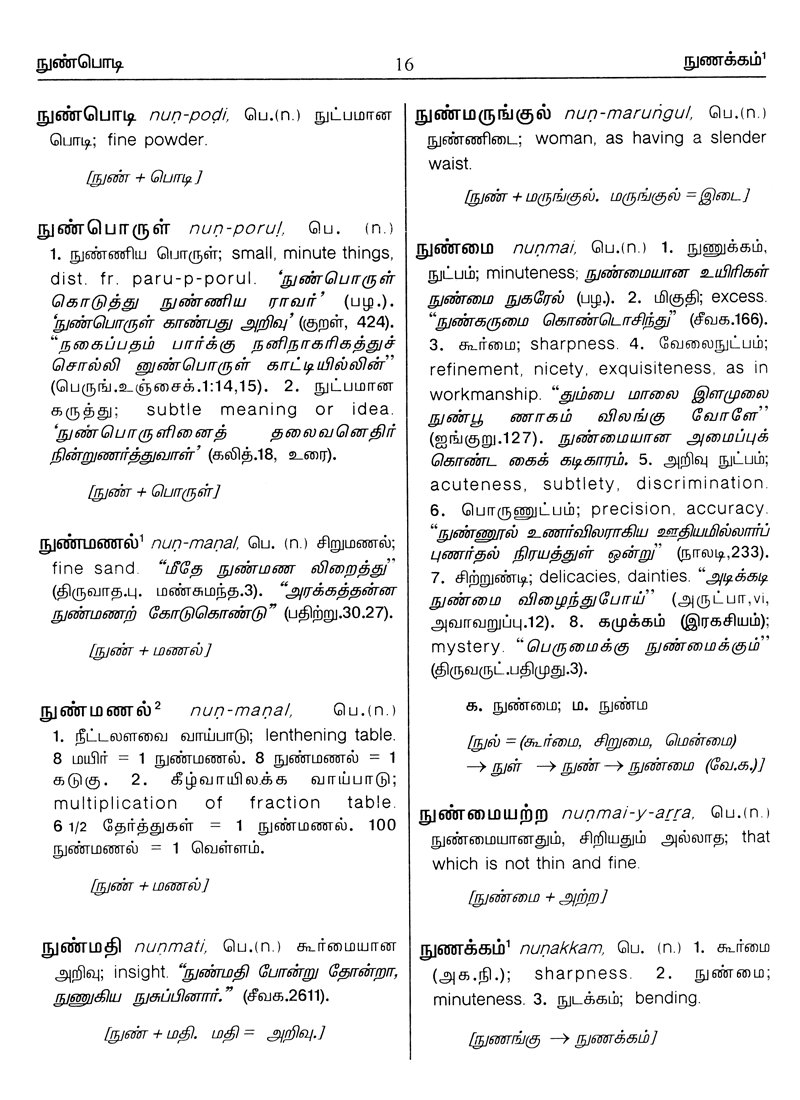 நுண்பொடி 16 நுணக்கம்¹
நுண்பொடி nuṇ-poḍi, பெ.(n.) நுட்பமான
பொடி; fine powder.
[நுண் + பொடி]
நுண்பொருள் nuṇ-poruḷ, பெ. (n.)
1. நுண்ணிய பொருள்; small, minute things,
dist. fr. paru-p-porul. ‘நுண்பொருள்
கொடுத்து நுண்ணிய ராவர்’ (பழ.).
‘நுண்பொருள் காண்பது அறிவு’ (குறள், 424).
“நகைப்பதம் பார்க்கு நனிநாகரிகத்துச்
சொல்லி னுண்பொருள் காட்டியில்லின்”
(பெருங்.உஞ்சைக்.1:14,15). 2. நுட்பமான
கருத்து; subtle meaning or idea.
‘நுண்பொருளினைத் தலைவனெதிர்
நின்றுணர்த்துவாள்’ (கலித்.18, உரை).
[நுண் + பொருள்]
நுண்மணல்¹ nuṇ-maṇal, பெ. (n.) சிறுமணல்;
fine sand. “மீதே நுண்மண லிறைத்து”
(திருவாத.பு. மண்சுமந்த.3). “அரக்கத்தன்ன
நுண்மணற் கோடுகொண்டு” (பதிற்று.30.27).
[நுண் + மணல்]
நுண்மணல்² nuṇ-maṇal, பெ.(n.)
1. நீட்டலளவை வாய்பாடு; lenthening table.
8 மயிர் = 1 நுண்மணல். 8 நுண்மணல் = 1
கடுகு. 2. கீழ்வாயிலக்க வாய்பாடு;
multiplication of fraction table.
6 1/2 தேர்த்துகள் = 1 நுண்மணல். 100
நுண்மணல் = 1 வெள்ளம்.
[நுண் + மணல்]
நுண்மதி nuṇmati, பெ.(n.) கூர்மையான
அறிவு; insight. “நுண்மதி போன்று தோன்றா,
நுணுகிய நுசுப்பினார்.” (சீவக.2611).
[நுண் + மதி. மதி = அறிவு.]
நுண்மருங்குல் nuṇ-maruṅgul, பெ.(n.)
நுண்ணிடை; woman, as having a slender
waist.
[நுண் + மருங்குல். மருங்குல் = இடை]
நுண்மை nuṇmai, பெ.(n.) 1. நுணுக்கம்,
நுட்பம்; minuteness; நுண்மையான உயிரிகள்
நுண்மை நுகரேல் (பழ.). 2. மிகுதி; excess.
“நுண்கருமை கொண்டொசிந்து” (சீவக.166).
3. கூர்மை; sharpness. 4. வேலைநுட்பம்;
refinement, nicety, exquisiteness, as in
workmanship. “தும்பை மாலை இளமுலை
நுண்பூ ணாகம் விலங்கு வோளே”
(ஐங்குறு.127). நுண்மையான அமைப்புக்
கொண்ட கைக் கடிகாரம். 5. அறிவு நுட்பம்;
acuteness, subtlety, discrimination.
6. பொருணுட்பம்; precision, accuracy.
“நுண்ணூல் உணர்விலராகிய ஊதியமில்லார்ப்
புணர்தல் நிரயத்துள் ஒன்று” (நாலடி,233).
7. சிற்றுண்டி; delicacies, dainties. “அடிக்கடி
நுண்மை விழைந்துபோய்” (அருட்பா,vi,
அவாவறுப்பு.12). 8. கமுக்கம் (இரகசியம்);
mystery. “பெருமைக்கு நுண்மைக்கும்”
(திருவருட்.பதிமுது.3).
க. நுண்மை; ம. நுண்ம
[நுல் = (கூர்மை, சிறுமை, மென்மை)
→ நுள் → நுண் → நுண்மை (வே.க.)]
நுண்மையற்ற nuṇmai-y-aṟṟa, பெ.(n.)
நுண்மையானதும், சிறியதும் அல்லாத; that
which is not thin and fine.
[நுண்மை + அற்ற]
நுணக்கம்¹ nuṇakkam, பெ. (n.) 1. கூர்மை
(அக.நி.); sharpness. 2. நுண்மை;
minuteness. 3. நுடக்கம்; bending.
[நுணங்கு → நுணக்கம்]